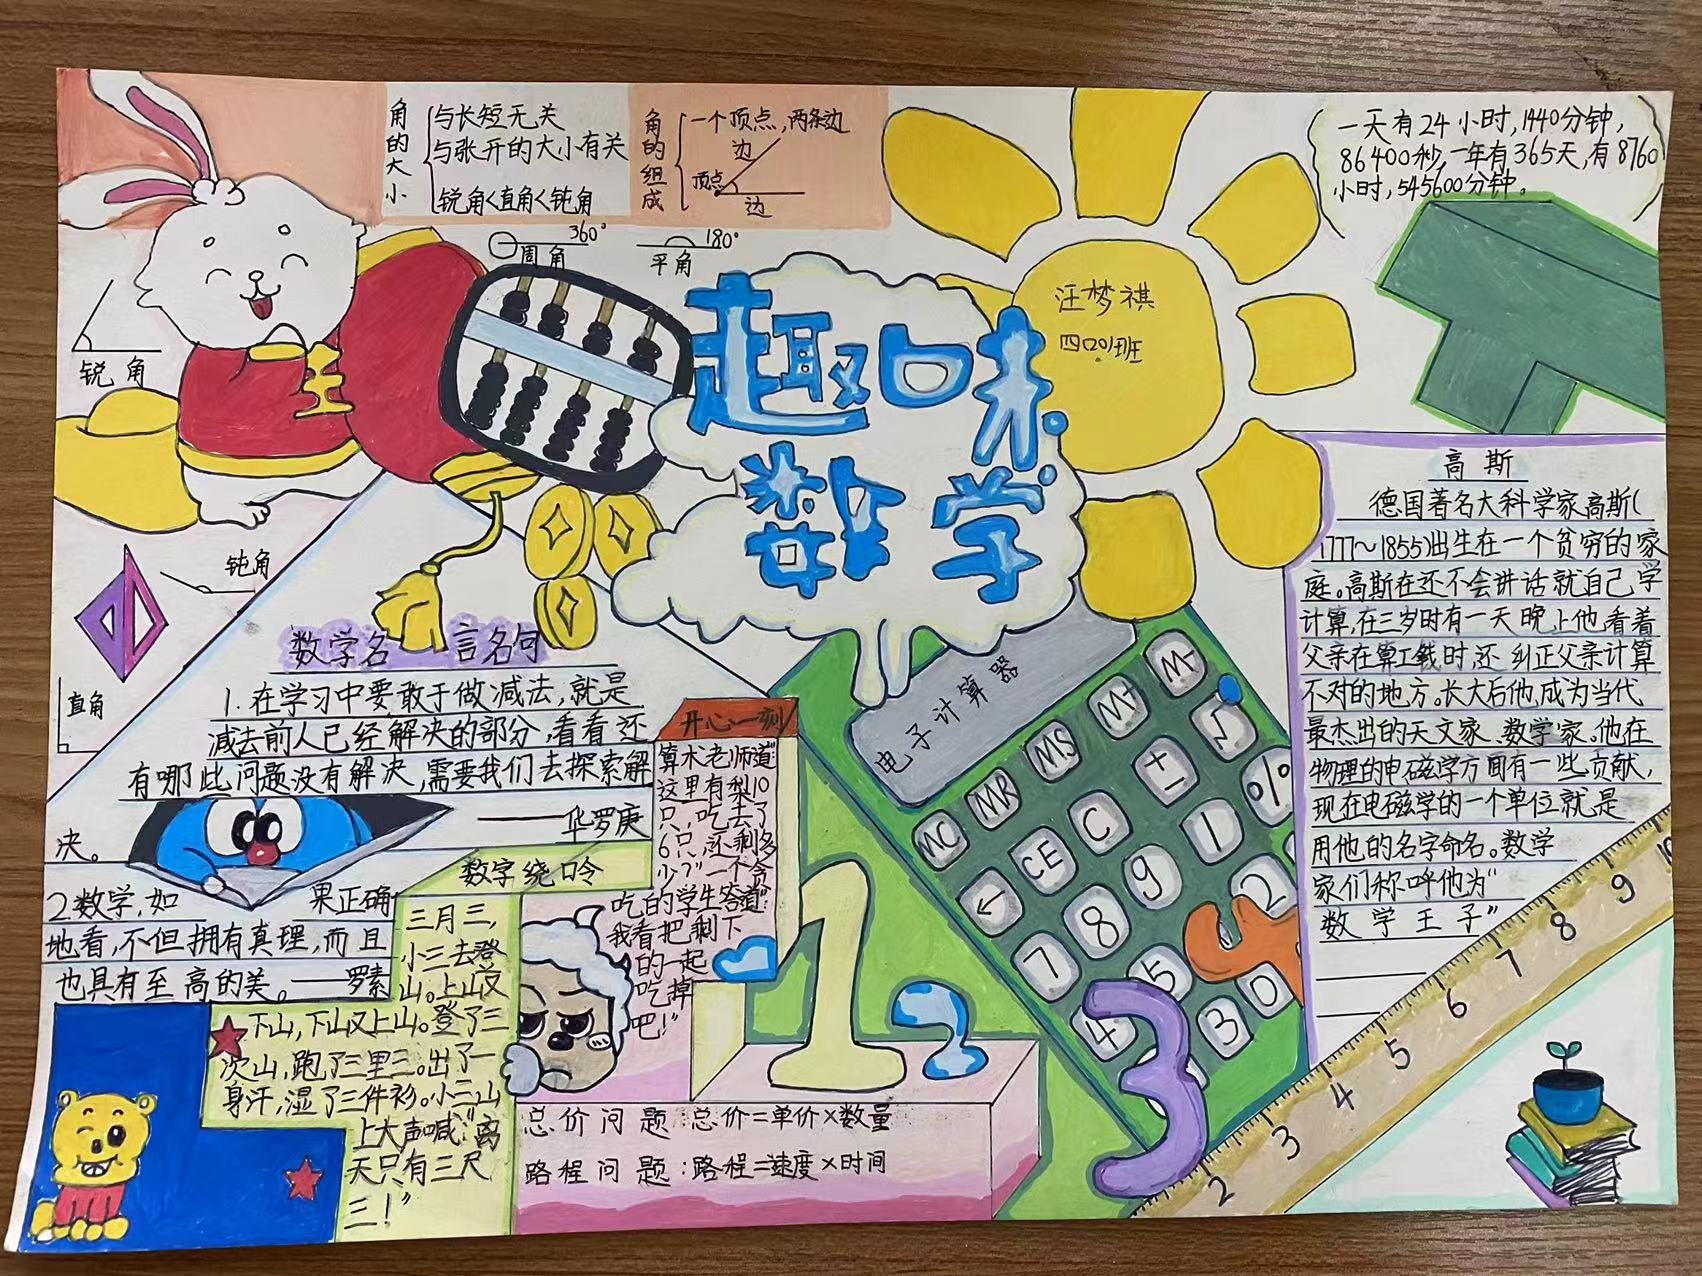 角的大小
与长短无关
与张开的大小有关
锐角<直角<钝角
角的组成
一个顶点,两条边
边
顶点
边
360°
周角
180°
平角
锐角
钝角
直角
趣味
数学
汪梦祺
四(20)班
一天有24小时,1440分钟,
86400秒,一年有365天,有8760
小时,545600分钟。
数学名言名句
1.在学习中要敢于做减法,就是
减去前人已经解决的部分,看看还
有哪些问题没有解决,需要我们去探索解
决。
——华罗庚
2数学,如果正确
地看,不但拥有真理,而且
也具有至高的美。——罗素
数字绕口呤
三月三,
小三去登
山。上山又
下山,下山又上山。登了三
次山,跑了三里三。出了一
身汗,湿了三件衫。小三山
上大声喊“离
天只有三尺
三!”
开心一刻
算术老师道“
这里有梨10
只,吃去了
6只,还剩多
少?”一个贪
吃的学生答道“
我看把剩下
的一起
吃掉
吧!”
总价问题:总价=单价×数量
路程问题:路程=速度×时间
1
2
3
电子计算器
MC MR MS M+ M-
← CE C ± √
7 8 9 1 %
4 5 2
3 0
高斯
德国著名大科学家高斯(
1777~1855)出生在一个贫穷的家
庭。高斯在还不会讲话就自己学
计算,在三岁时有一天晚上他看着
父亲在算工钱时还纠正父亲计算
不对的地方。长大后他成为当代
最杰出的天文家、数学家。他在
物理的电磁学方面有一些贡献,
现在电磁学的一个单位就是
用他的名字命名。数学
家们称呼他为“
数学王子”
2 3 4 5 6 7 8 9 10